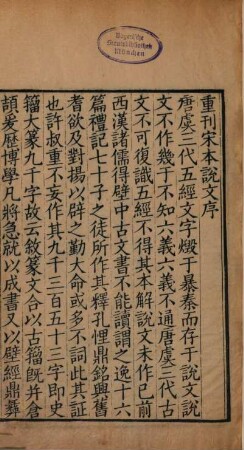 Bayerische
Staatsbibliothek
München
重刊宋本說文序
唐虞三代五經文字燬于暴秦而存于說文說
文不作幾于不知六義六義不通唐虞三代古
文不可復識五經不得其本解說文未作已前
西漢諸儒得壁中古文書不能讀謂之逸十六
篇禮記七十子之徒所作其釋孔悝鼎銘興舊
耆欲及對揚以辟之勤大命或多不詞此其證
也許叔重不妄作其九千三百五十三字即史
籀大篆九千字故云敘篆文合以古籀既并倉
頡爰歷博學凡將急就以成書又以壁經鼎彝